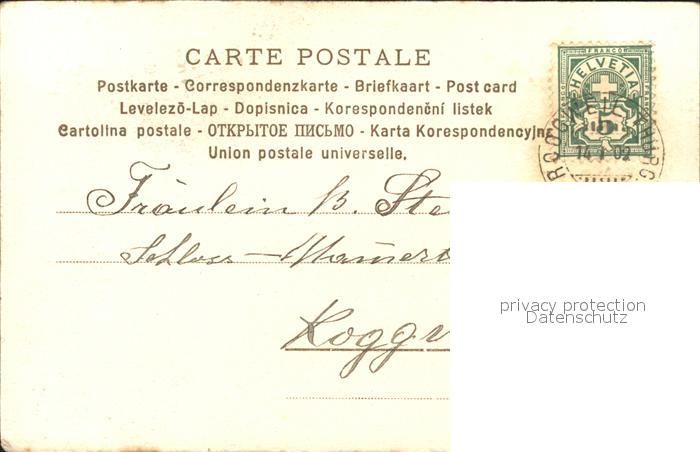 CARTE POSTALE
Postkarte - Correspondenzkarte - Briefkaart - Post card
Levelező-Lap - Dopisnica - Korespondenční listek
Cartolina postale - ОТКРЫТОЕ ПИСЬМО - Karta Korespondencyjn
Union postale universelle.
FRANCO
HELVETIA
5
Fräulein B. Ste
Schloss -
Kogg
privacy protection
Datenschutz